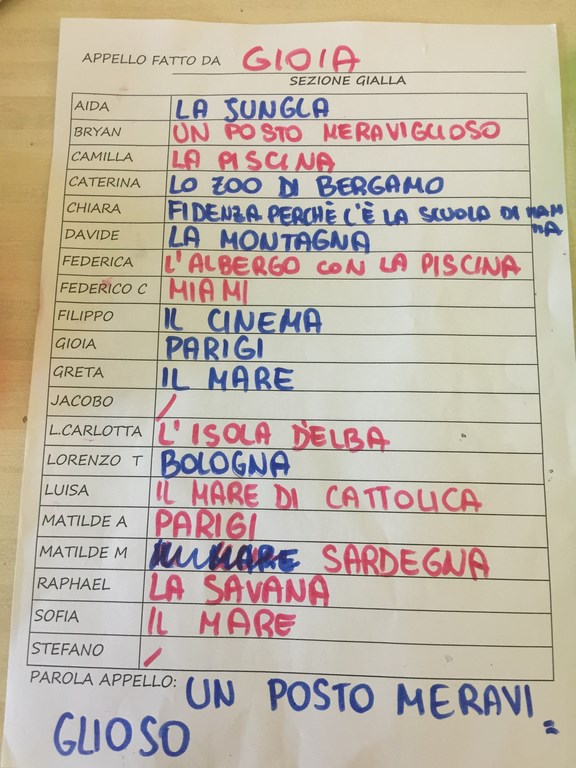 APPELLO FATTO DA GIOIA
SEZIONE GIALLA
AIDA LA JUNGLA
BRYAN UN POSTO MERAVIGLIOSO
CAMILLA LA PISCINA
CATERINA LO ZOO DI BERGAMO
CHIARA FIDENZA PERCHÈ C'È LA SCUOLA DI MAM
MA
DAVIDE LA MONTAGNA
FEDERICA L'ALBERGO CON LA PISCINA
FEDERICO C MIAMI
FILIPPO IL CINEMA
GIOIA PARIGI
GRETA IL MARE
JACOBO /
L.CARLOTTA L'ISOLA D'ELBA
LORENZO T BOLOGNA
LUISA IL MARE DI CATTOLICA
MATILDE A PARIGI
MATILDE M MARE SARDEGNA
RAPHAEL LA SAVANA
SOFIA IL MARE
STEFANO /
PAROLA APPELLO: UN POSTO MERAVI
GLIOSO =